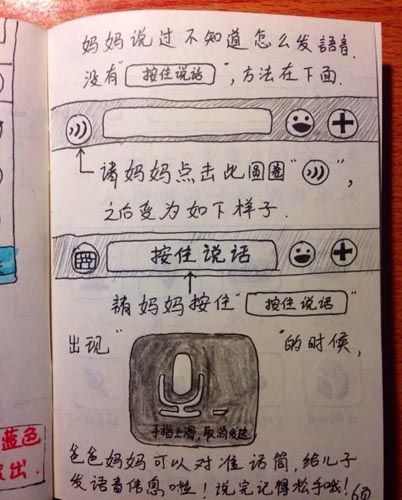 妈妈说过不知道怎么发語音.
没有"按住说话",方法在下面.
请妈妈点击此圖圈"",
之后变为如下样子.
按住说话
請妈妈按住"按住说话"
出现""的时候,
手指上滑,取消发送
爸爸妈妈可以对准话筒,给儿子
发语音信息啦!说完记得松手哦!
蓝色
出.